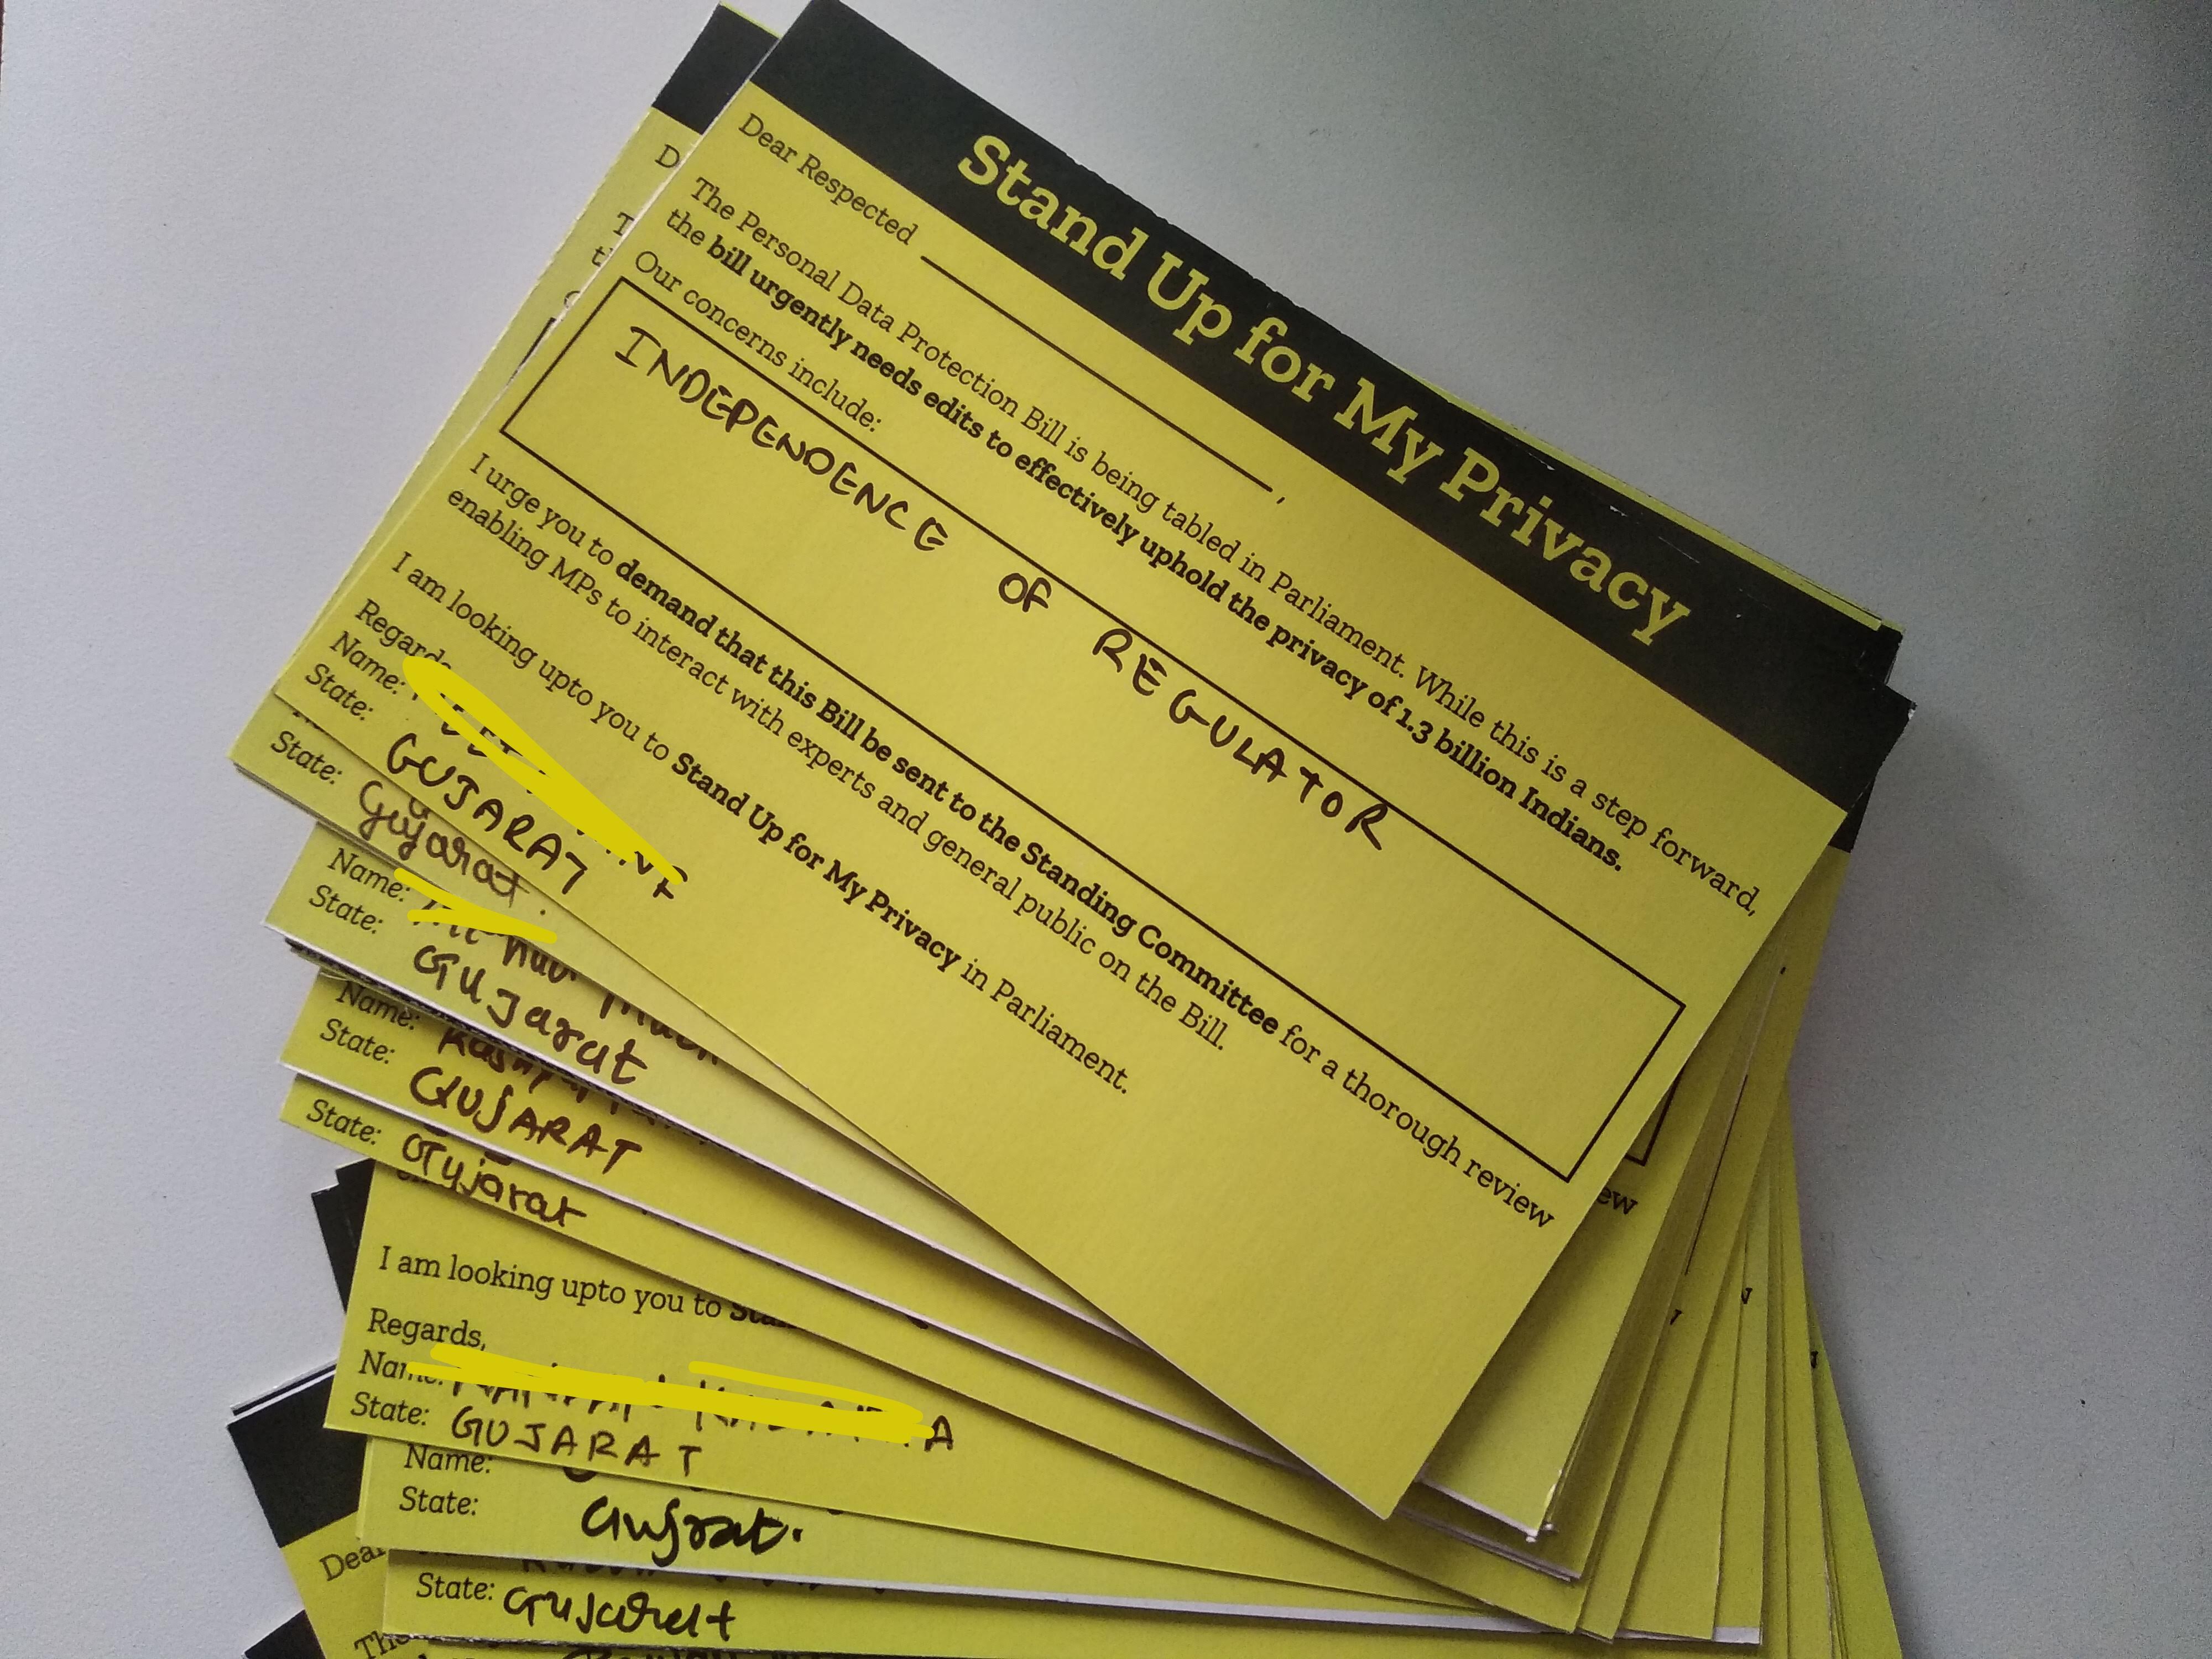 Stand Up for My Privacy
Dear Respected ,
The Personal Data Protection Bill is being tabled in Parliament. While this is a step forward,
the bill urgently needs edits to effectively uphold the privacy of 1.3 billion Indians.
Our concerns include:
INDEPENDENCE OF REGULATOR
I urge you to demand that this Bill be sent to the Standing Committee for a thorough review
enabling MPs to interact with experts and general public on the Bill.
I am looking upto you to Stand Up for My Privacy in Parliament.
Regards
Name:
State: GUJARAT
State: Gujarat.
Name:
State: GUJarat
Name:
State: GUJARAT
State: Gujarat
I am looking upto you to
Regards,
Name:
State: GUJARAT
Name:
State: Gujrat.
State: Gujarat